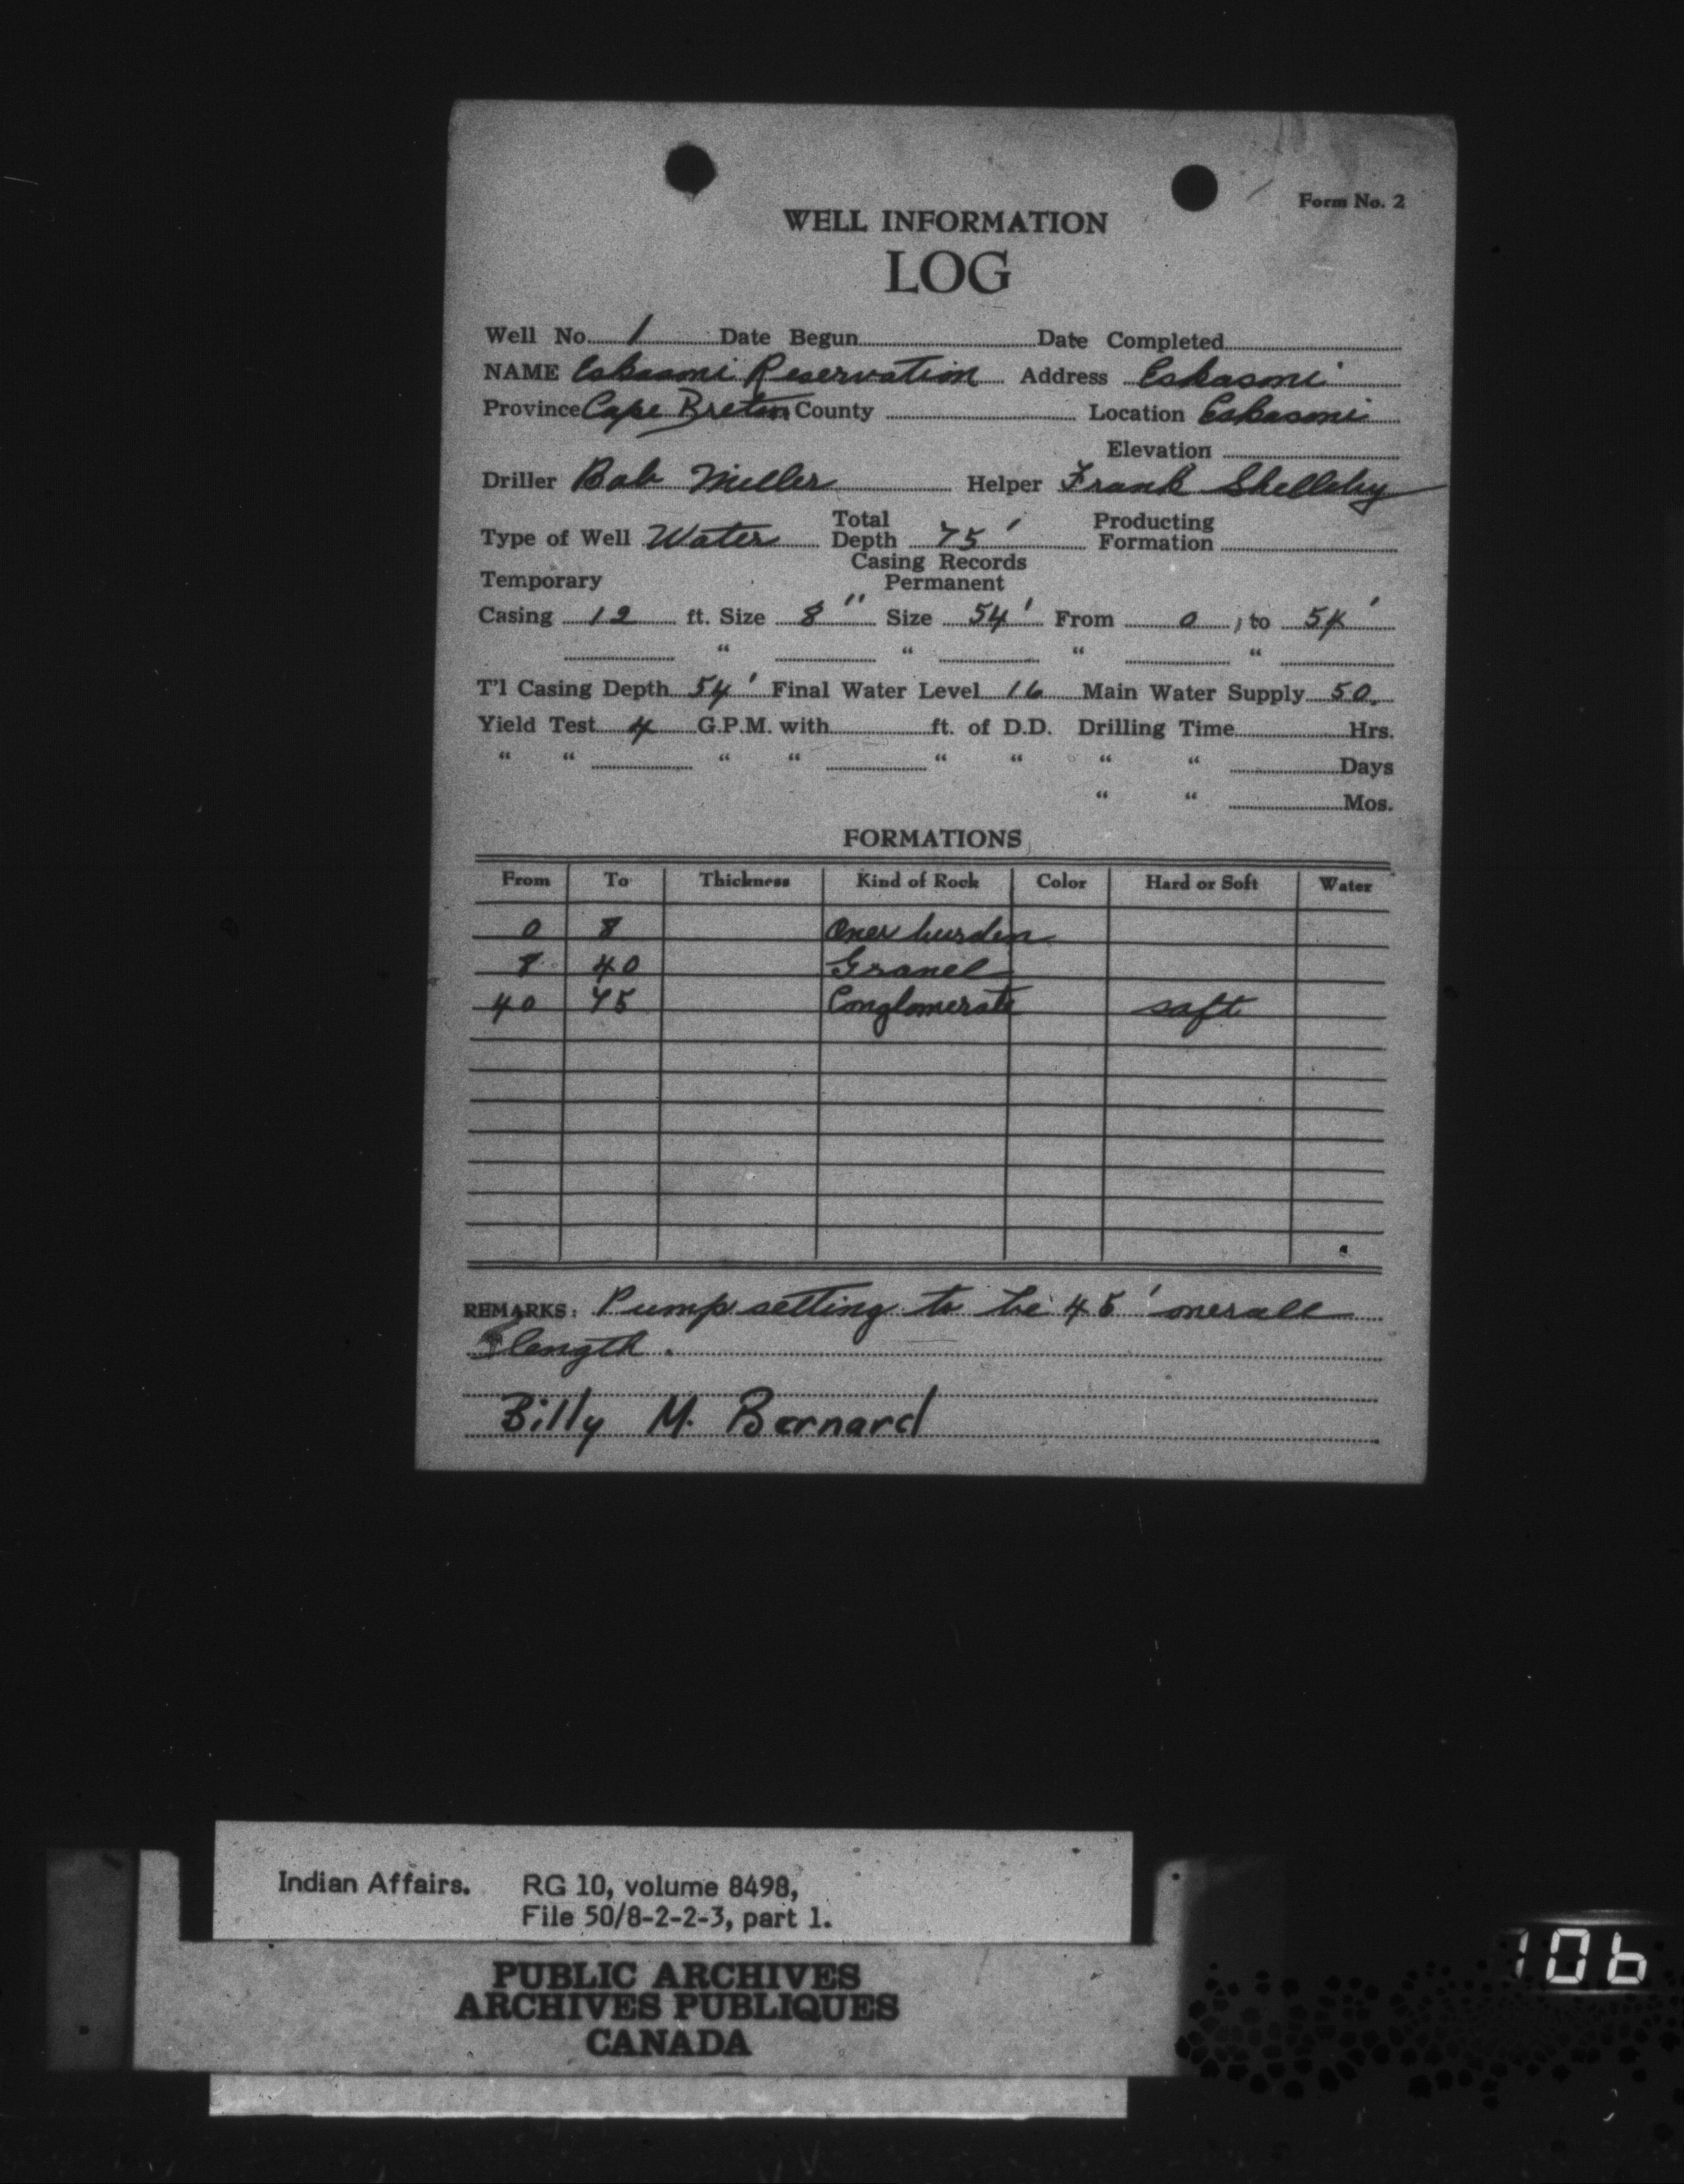 Form No. 2
WELL INFORMATION
LOG
Well No. 1 Date Begun Date Completed
NAME Eskasoni Reservation Address Eskasoni
Province Cape Breton County Location Eskasoni
Elevation
Driller Bob Miller Helper Frank Shelleby
Type of Well Water Total Depth 75' Producting Formation
Casing Records
Temporary Permanent
Casing 12 ft. Size 8" Size 54' From 0, to 54'
" " " "
T'l Casing Depth 54' Final Water Level 16 Main Water Supply 50.
Yield Test 4 G.P.M. with ft. of D.D. Drilling Time Hrs.
" " " " " " " " Days
" " Mos.
FORMATIONS
From To Thickness Kind of Rock Color Hard or Soft Water
0 8 Over burden
8 40 Gravel
40 75 Conglomerate soft
REMARKS: Pump setting to be 45' overall
length.
Billy M. Bernard
Indian Affairs. RG 10, volume 8498,
File 50/8-2-2-3, part 1.
PUBLIC ARCHIVES
ARCHIVES PUBLIQUES
CANADA
106